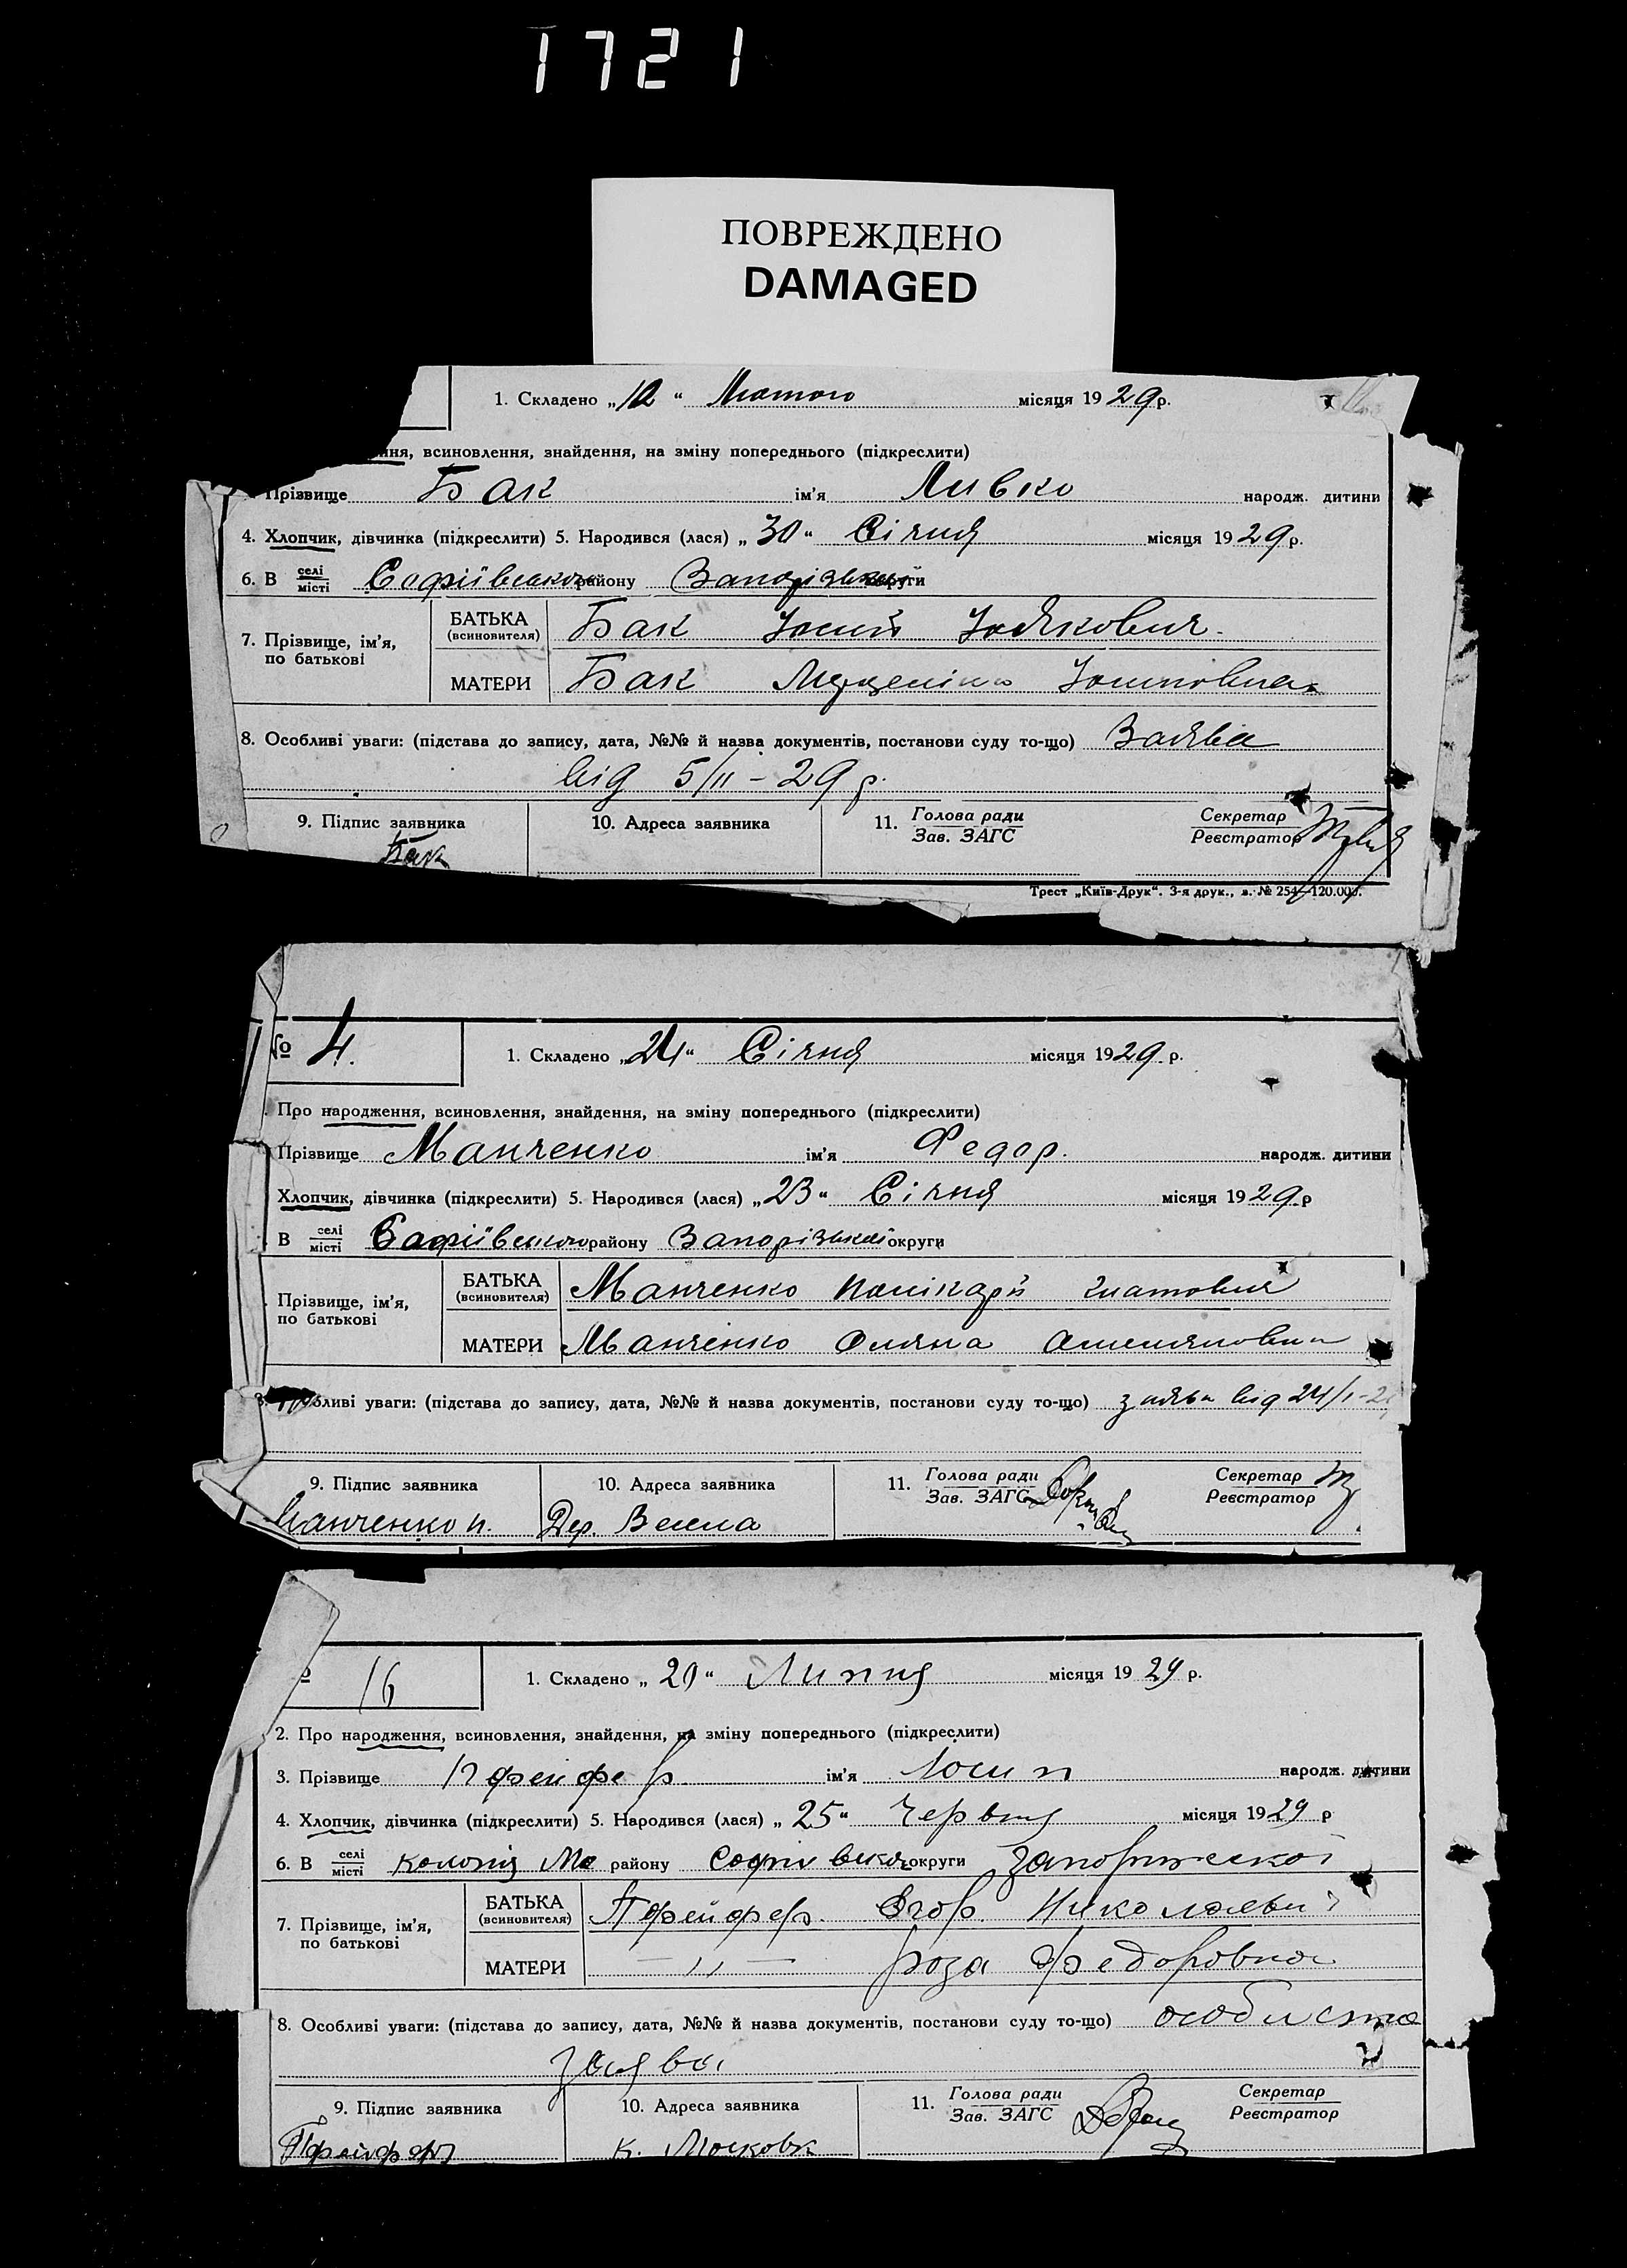 1721
ПОВРЕЖДЕНО
DAMAGED
1. Складено „12“ Лютого місяця 1929р.
ння, всиновлення, знайдення, на зміну попереднього (підкреслити)
Прізвище Бак ім'я Ливко народж. дитини
4. Хлопчик, дівчинка (підкреслити) 5. Народився (лася) „30“ Січня місяця 1929р.
6. В селі місті Софіївського району Запорізької округи
7. Прізвище, ім'я, по батькові
БАТЬКА (всиновителя) Бак
МАТЕРИ Бак
8. Особливі уваги: (підстава до запису, дата, №№ й назва документів, постанови суду то-що) Заява
від 5/II - 29 р.
9. Підпис заявника 10. Адреса заявника 11. Голова ради Зав. ЗАГС Секретар Реєстратор
Бак
Трест „Київ-Друк“. 3-я друк., з. № 254—120.000.
№ 4. 1. Складено „24“ Січня місяця 1929. р.
Про народження, всиновлення, знайдення, на зміну попереднього (підкреслити)
Прізвище Манченко ім'я Федор. народж. дитини
Хлопчик, дівчинка (підкреслити) 5. Народився (лася) „23“ Січня місяця 1929.р
В селі місті Софіївського району Запорізької округи
Прізвище, ім'я, по батькові
БАТЬКА (всиновителя) Манченко Полікарп Гнатович
МАТЕРИ Манченко Оляна
бливі уваги: (підстава до запису, дата, №№ й назва документів, постанови суду то-що) заява від 24/I-29
9. Підпис заявника 10. Адреса заявника 11. Голова ради Зав. ЗАГС Секретар Реєстратор
Манченко п. Дер. Весела
16 1. Складено „20“ Липня місяця 1929 р.
2. Про народження, всиновлення, знайдення, на зміну попереднього (підкреслити)
3. Прізвище Пфейфер ім'я Йосип народж. дитини
4. Хлопчик, дівчинка (підкреслити) 5. Народився (лася) „25“ Червня місяця 1929 р
6. В селі місті колонія Мо району Софиевского округи Запорижской
7. Прізвище, ім'я, по батькові
БАТЬКА (всиновителя) Пфейфер. Егор Николаевич
МАТЕРИ —„— Роза Федоровна
8. Особливі уваги: (підстава до запису, дата, №№ й назва документів, постанови суду то-що) особиста
заява
9. Підпис заявника 10. Адреса заявника 11. Голова ради Зав. ЗАГС Секретар Реєстратор
Пфейфер к.